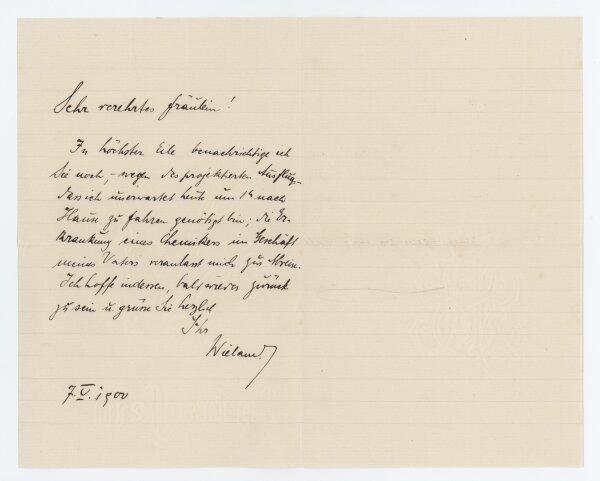 Sehr verehrtes Fräulein!
In höchster Eile benachrichtige ich
Sie noch, – wegen des projektierten Ausflugs –
dass ich unerwartet heute um 1 nach
Hause zu fahren genötigt bin; die Er-
krankung eines Chemikers im Geschäft
meines Vaters veranlasst mich zur Abreise.
Ich hoffe indessen, bald wieder zurück
zu sein u. grüsse Sie herzlich
Ihr
Wieland.
7. V. 1900